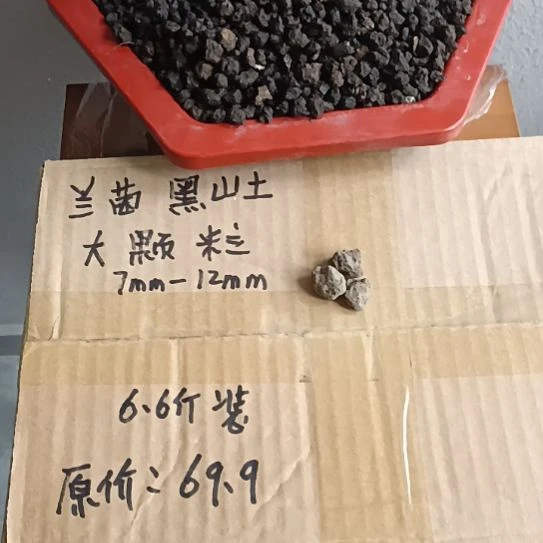 兰蒂黑山土
大颗粒
7mm-12mm
6.6斤装
原价:69.9